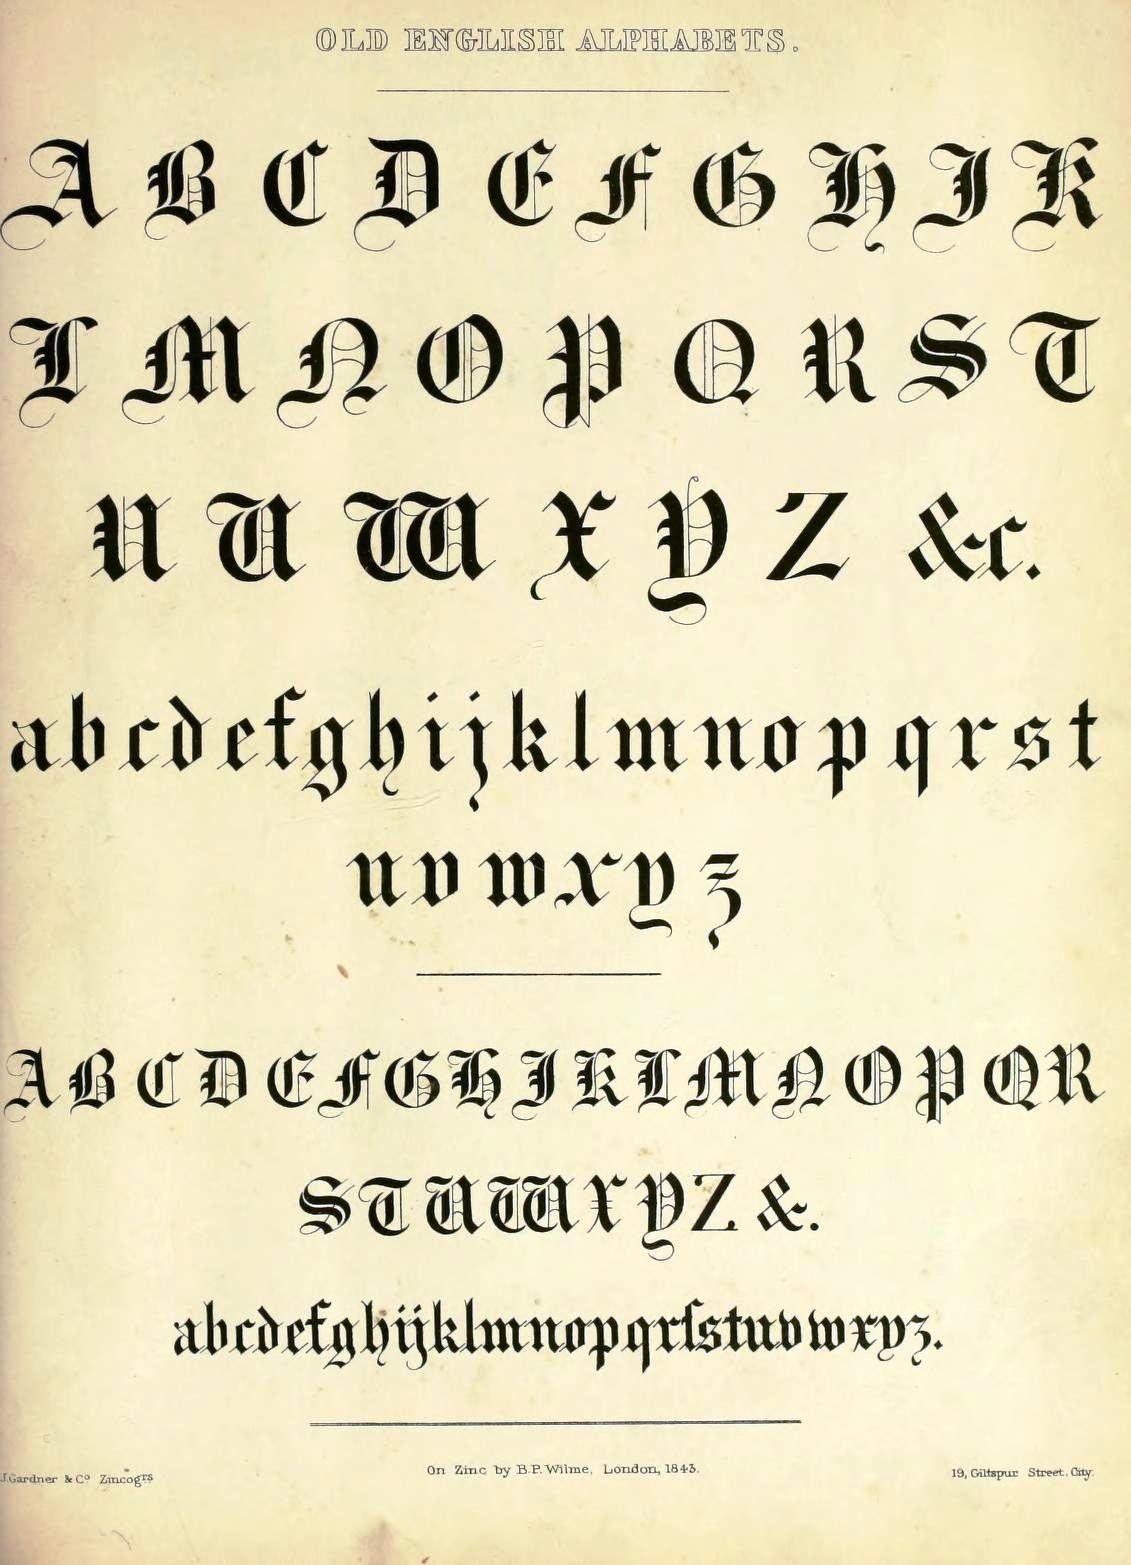 OLD ENGLISH ALPHABETS.
A B C D E F G H I K
L M N O P Q R S T
U U W X Y Z &c.
a b c d e f g h i j k l m n o p q r s t
u v w x y z
A B C D E F G H I K L M N O P Q R
S T U W X Y Z &.
abcdefghijklmnopqrſstuvwxyz.
J. Gardner & Co Zincogrs
On Zinc by B.P. Wilme, London, 1843.
19, Giltspur Street, City.